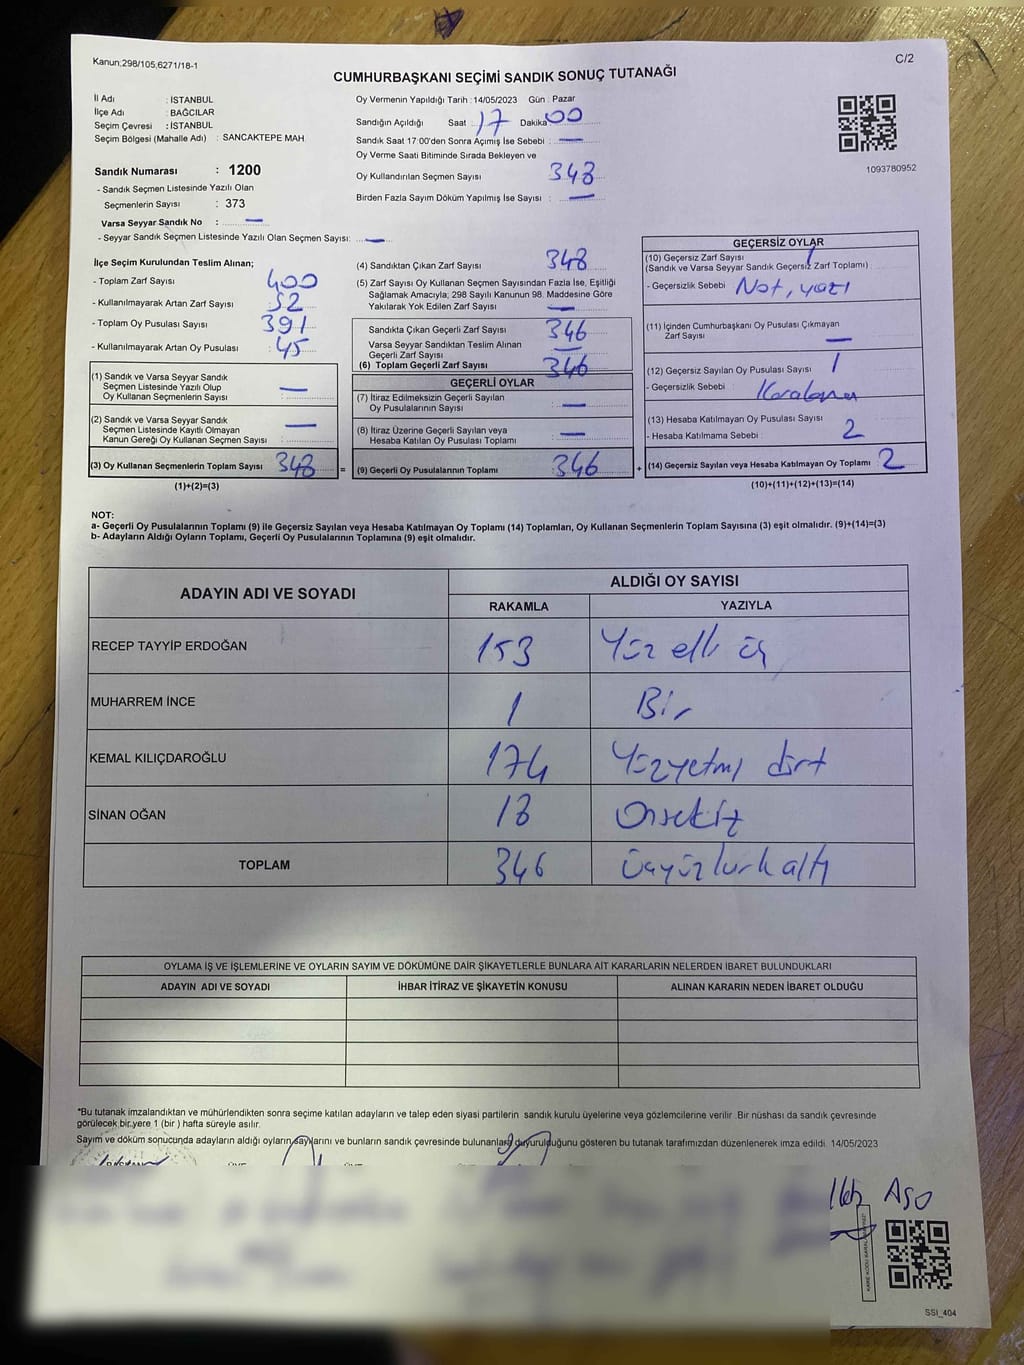 Kanun;298/105,6271/18-1
C/2
CUMHURBAŞKANI SEÇİMİ SANDIK SONUÇ TUTANAĞI
İl Adı : İSTANBUL
İlçe Adı : BAĞCILAR
Seçim Çevresi : İSTANBUL
Seçim Bölgesi (Mahalle Adı) : SANCAKTEPE MAH
Sandık Numarası : 1200
- Sandık Seçmen Listesinde Yazılı Olan
Seçmenlerin Sayısı : 373
Varsa Seyyar Sandık No : —
- Seyyar Sandık Seçmen Listesinde Yazılı Olan Seçmen Sayısı: —
Oy Vermenin Yapıldığı Tarih : 14/05/2023 Gün : Pazar
Sandığın Açıldığı Saat 17 Dakika 00
Sandık Saat 17:00'den Sonra Açımış İse Sebebi : —
Oy Verme Saati Bitiminde Sırada Bekleyen ve
Oy Kullandırılan Seçmen Sayısı 348
Birden Fazla Sayım Döküm Yapılmış İse Sayısı : —
1093780952
İlçe Seçim Kurulundan Teslim Alınan;
- Toplam Zarf Sayısı : 400
- Kullanılmayarak Artan Zarf Sayısı : 52
- Toplam Oy Pusulası Sayısı : 391
- Kullanılmayarak Artan Oy Pusulası : 45
(1) Sandık ve Varsa Seyyar Sandık
Seçmen Listesinde Yazılı Olup
Oy Kullanan Seçmenlerin Sayısı : —
(2) Sandık ve Varsa Seyyar Sandık
Seçmen Listesinde Kayıtlı Olmayan
Kanun Gereği Oy Kullanan Seçmen Sayısı : —
(3) Oy Kullanan Seçmenlerin Toplam Sayısı 348 =
(1)+(2)=(3)
(4) Sandıktan Çıkan Zarf Sayısı 348
(5) Zarf Sayısı Oy Kullanan Seçmen Sayısından Fazla İse, Eşitliği
Sağlamak Amacıyla; 298 Sayılı Kanunun 98. Maddesine Göre
Yakılarak Yok Edilen Zarf Sayısı —
Sandıkta Çıkan Geçerli Zarf Sayısı 346
Varsa Seyyar Sandıktan Teslim Alınan
Geçerli Zarf Sayısı —
(6) Toplam Geçerli Zarf Sayısı 346
GEÇERLİ OYLAR
(7) İtiraz Edilmeksizin Geçerli Sayılan
Oy Pusulalarının Sayısı : —
(8) İtiraz Üzerine Geçerli Sayılan veya
Hesaba Katılan Oy Pusulası Toplamı : —
(9) Geçerli Oy Pusulalarının Toplamı : 346 +
GEÇERSİZ OYLAR
(10) Geçersiz Zarf Sayısı 1
(Sandık ve Varsa Seyyar Sandık Geçersiz Zarf Toplamı)
- Geçersizlik Sebebi Not, yazı
(11) İçinden Cumhurbaşkanı Oy Pusulası Çıkmayan
Zarf Sayısı —
(12) Geçersiz Sayılan Oy Pusulası Sayısı 1
- Geçersizlik Sebebi : Karalama
(13) Hesaba Katılmayan Oy Pusulası Sayısı
- Hesaba Katılmama Sebebi : 2
(14) Geçersiz Sayılan veya Hesaba Katılmayan Oy Toplamı 2
(10)+(11)+(12)+(13)=(14)
NOT:
a- Geçerli Oy Pusulalarının Toplamı (9) ile Geçersiz Sayılan veya Hesaba Katılmayan Oy Toplamı (14) Toplamları, Oy Kullanan Seçmenlerin Toplam Sayısına (3) eşit olmalıdır. (9)+(14)=(3)
b- Adayların Aldığı Oyların Toplamı, Geçerli Oy Pusulalarının Toplamına (9) eşit olmalıdır.
ADAYIN ADI VE SOYADI
ALDIĞI OY SAYISI
RAKAMLA YAZIYLA
RECEP TAYYİP ERDOĞAN 153 Yüz elli üç
MUHARREM İNCE 1 Bir
KEMAL KILIÇDAROĞLU 174 Yüzyetmi dört
SİNAN OĞAN 18 Onsekiz
TOPLAM 346 üçyüzkırk altı
OYLAMA İŞ VE İŞLEMLERİNE VE OYLARIN SAYIM VE DÖKÜMÜNE DAİR ŞİKAYETLERLE BUNLARA AİT KARARLARIN NELERDEN İBARET BULUNDUKLARI
ADAYIN ADI VE SOYADI İHBAR İTİRAZ VE ŞİKAYETİN KONUSU ALINAN KARARIN NEDEN İBARET OLDUĞU
*Bu tutanak imzalandıktan ve mühürlendikten sonra seçime katılan adayların ve talep eden siyasi partilerin sandık kurulu üyelerine veya gözlemcilerine verilir .Bir nüshası da sandık çevresinde
görülecek bir yere 1 (bir ) hafta süreyle asılır.
Sayım ve döküm sonucunda adayların aldığı oyların sayılarını ve bunların sandık çevresinde bulunanlara duyurulduğunu gösteren bu tutanak tarafımızdan düzenlenerek imza edildi. 14/05/2023
BAŞKAN ÜYE
SSI_404